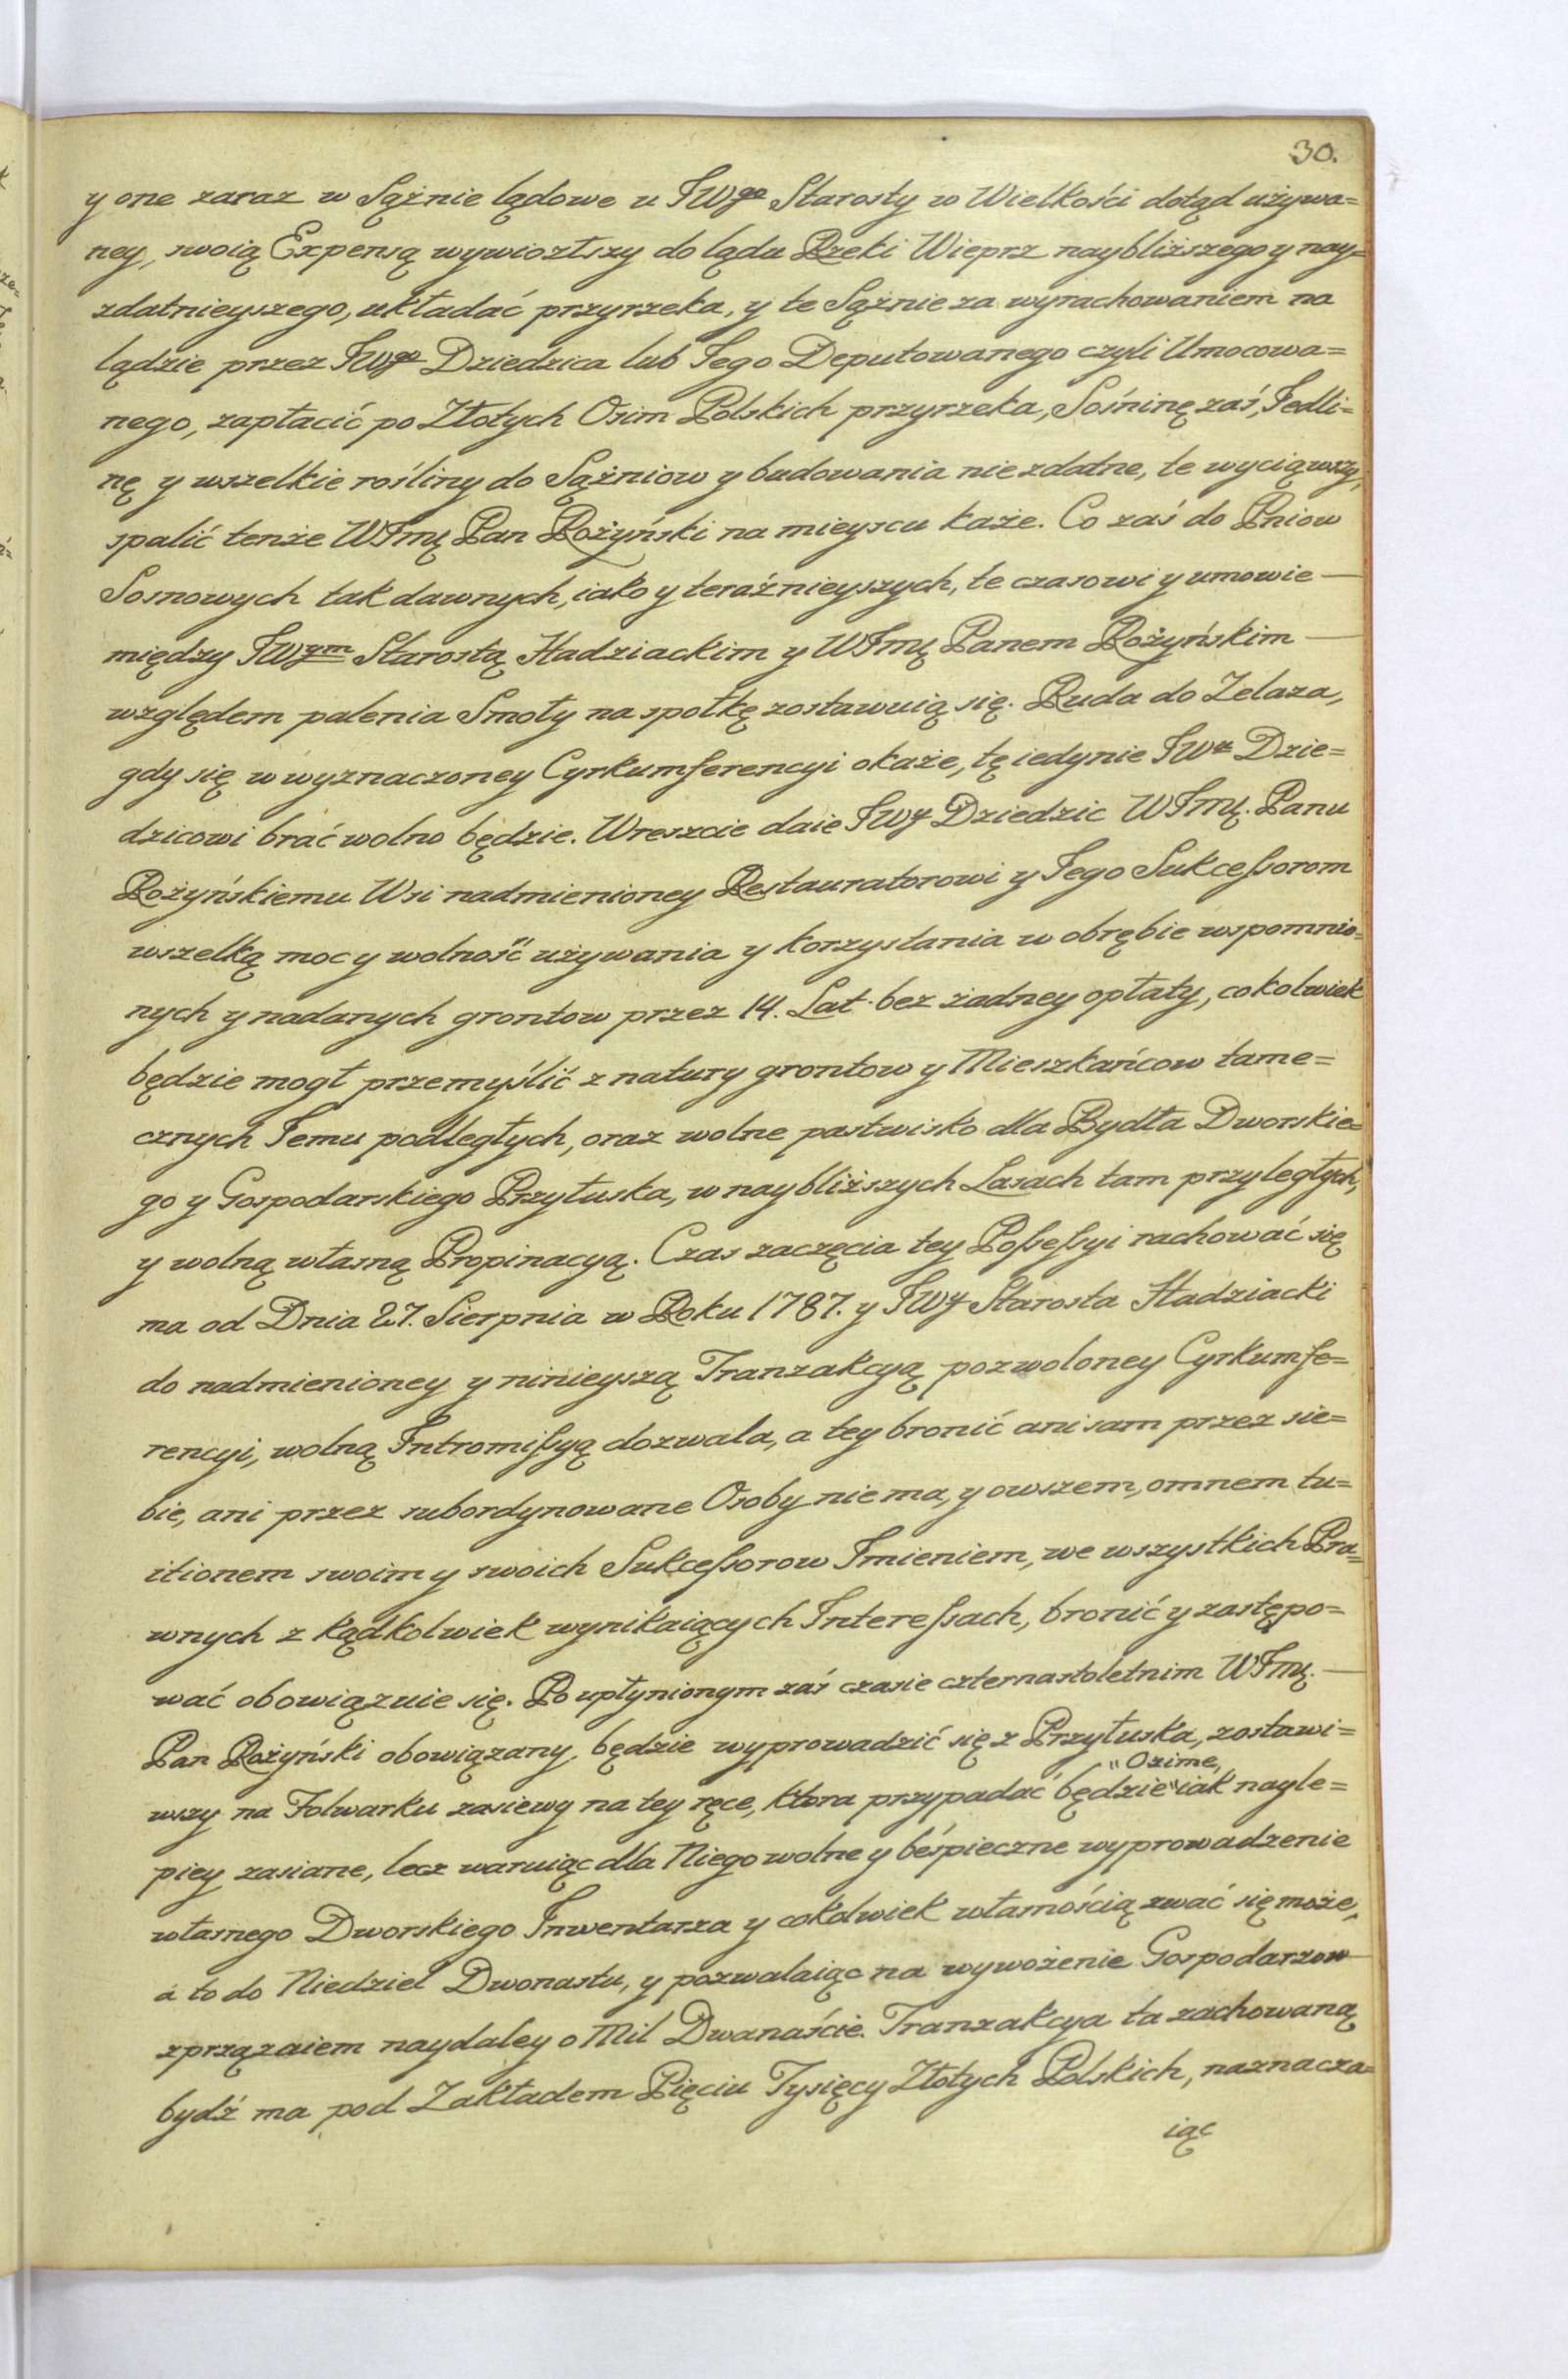 30.
y one zaraz w Sążnie lądowe u JWgo Starosty w Wielkości dotąd używa=
ney, swoią Expensą wywiozłszy do lądu Rzeki Wieprz naybliższego y nay=
zdatnieyszego, układać przyrzeka, y te Sążnie za wyrachowaniem na
lądzie przez JWgo Dziedzica lub Jego Deputowanego czyli Umocowa=
nego, zapłacić po Złotych Osim Polskich przyrzeka, Sośninę zaś, Jedli=
nę y wszelkie rośliny do Sążniow y budowania nie zdatne, te wyciąwszy,
spalić tenże WJmę Pan Rożyński na mieyscu każe. Co zaś do Pniow
Sosnowych tak dawnych, iako y teraźnieyszych, te czasowi y umowie —
między JWym Starostą Hadziackim y WJmę Panem Rożyńskim —
względem palenia Smoły na społkę zostawuią się. Ruda do Żelaza,
gdy się w wyznaczoney Cyrkumferencyi okaże, tę iedynie JWu Dzie=
dzicowi brać wolno będzie. Wreszcie daie JWy Dziedzic WJmę. Panu
Rożyńskiemu Wsi nadmienioney Restauratorowi y Jego Sukcessorom
wszelką moc y wolność używania y korzystania w obrębie wspomnio=
nych y nadanych grontow przez 14. Lat bez żadney opłaty, cokolwiek
będzie mogł przemyślić z natury grontow y Mieszkańcow tame=
cznych Jemu podległych, oraz wolne pastwisko dla Bydła Dworskie=
go y Gospodarskiego Przytuska, w naybliższych Lasach tam przyległych,
y wolną własną Propinacyą. Czas zaczęcia tey Possessyi rachować się
ma od Dnia 27. Sierpnia w Roku 1787. y JWy Starosta Hadziacki
do nadmienioney y ninieyszą Tranzakcyą pozwoloney Cyrkumfe=
rencyi, wolną Intromissyą dozwala, a tey bronić ani sam przez sie=
bie, ani przez subordynowane Osoby nie ma, y owszem, omnem tu=
itionem swoim y swoich Sukcessorow Imieniem, we wszystkich Pra=
wnych z kądkolwiek wynikaiących Interessach, bronić y zastępo=
wać obowiązuie się. Po upłynionym zaś czasie czternastoletnim WJmę. —
Pan Rożyński obowiązany będzie wyprowadzić się z Przytuska, zostawi=
wszy na Folwarku zasiewy na tey ręce, ktora przypadać będzie "Ozime, "iak nayle=
piey zasiane, lecz waruiąc dla Niego wolne y beśpieczne wyprowadzenie
własnego Dworskiego Inwentarza y cokolwiek własnością zwać się może,
a to do Niedziel Dwonastu, y pozwalaiąc na wywożenie Gospodarzow
zprzązaiem naydaley o Mil Dwanaście. Tranzakcya ta zachowaną
bydź ma pod Zakładem Pięciu Tysięcy Złotych Polskich, naznacza=
iąc